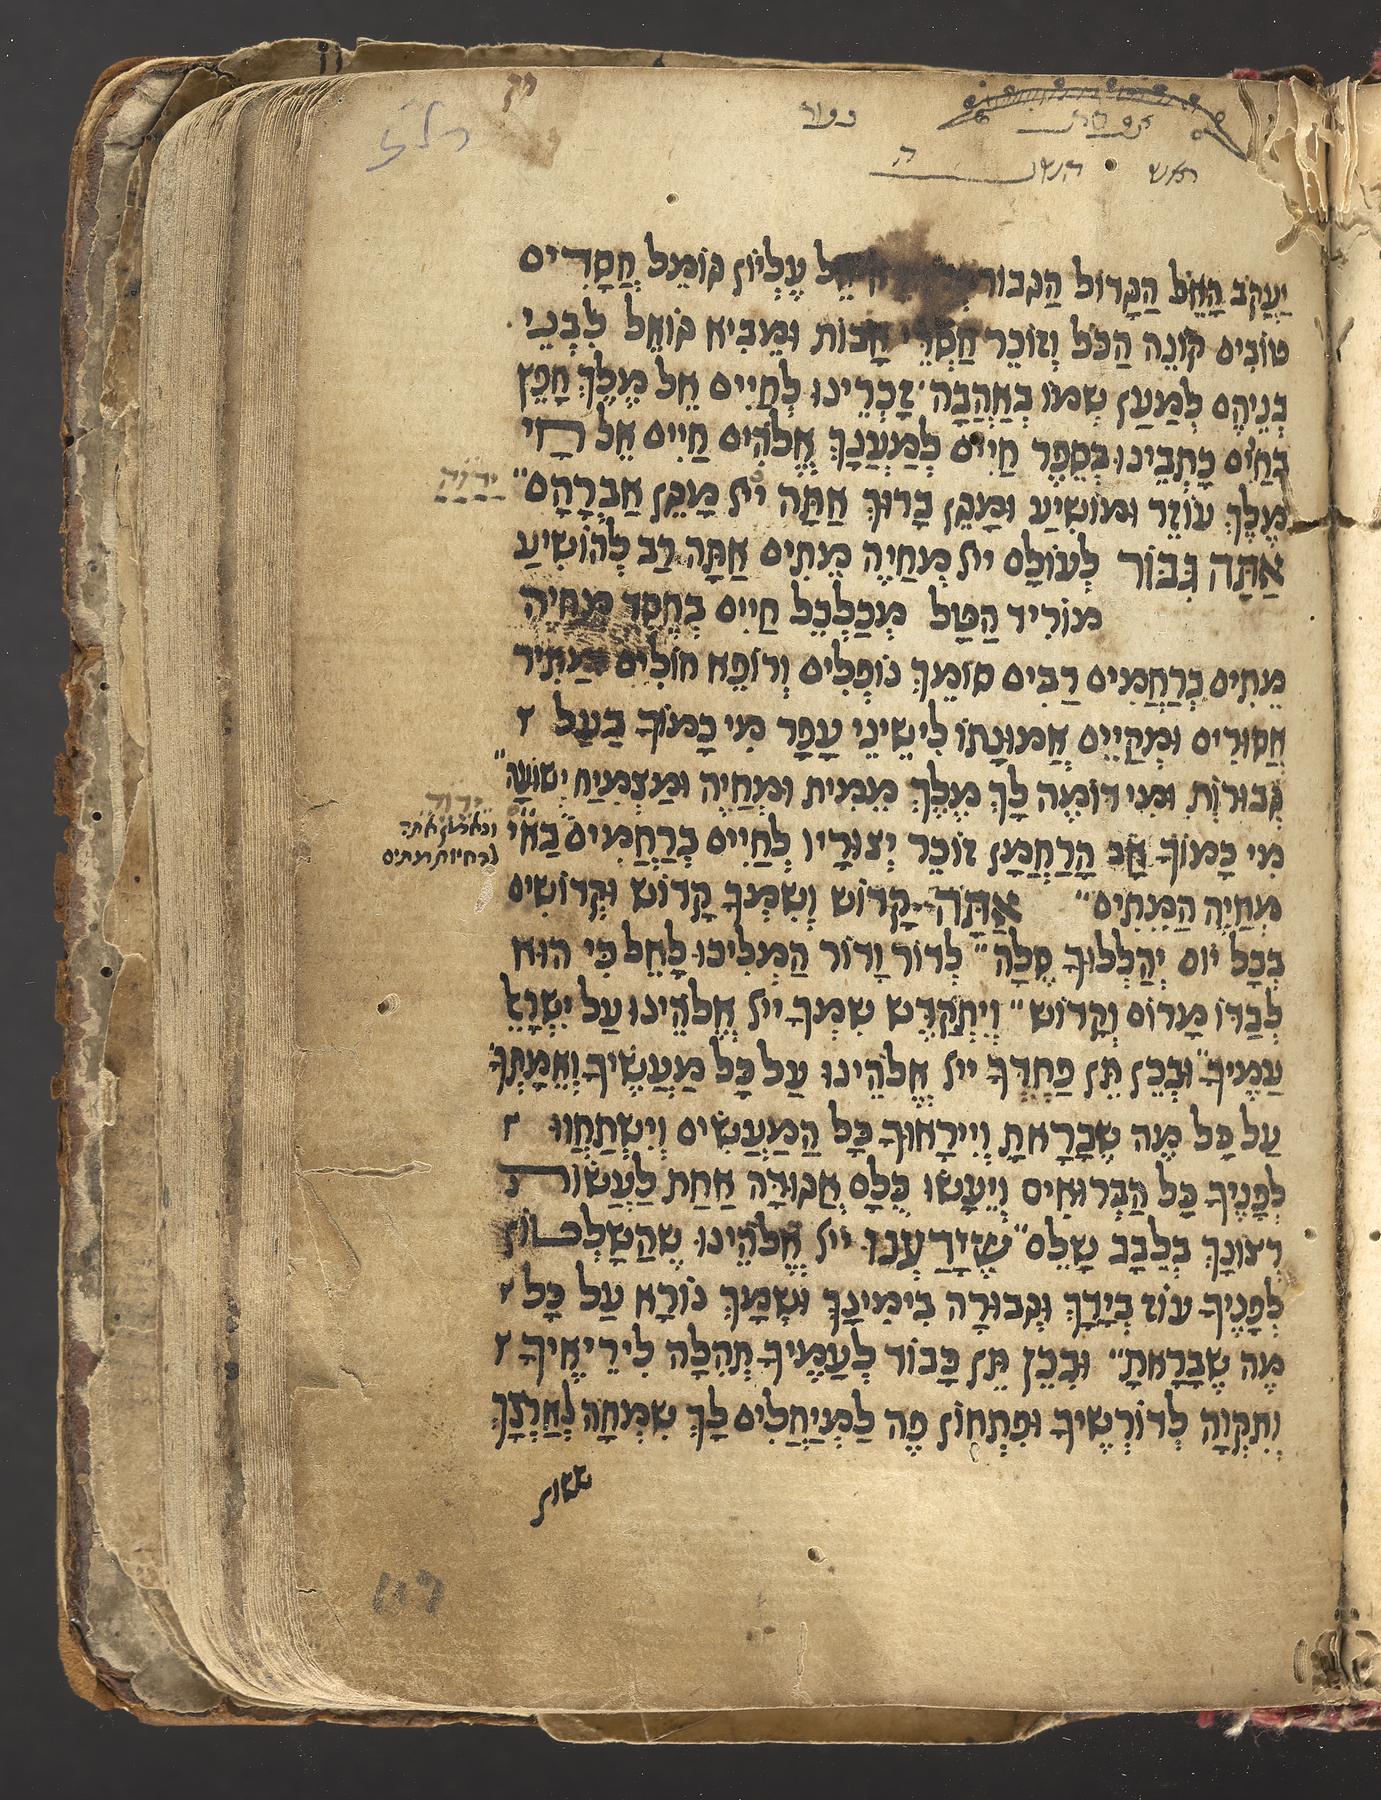 תפסת
ראש השנה
יַעֲקֹב הָאֵל הַגָּדוֹל הַגִּבּוֹר אֵל עֶלְיוֹן גּוֹמֵל חֲסָדִים
טוֹבִים קוֹנֵה הַכֹּל וְזוֹכֵר חַסְדֵי אָבוֹת וּמֵבִיא גּוֹאֵל לִבְנֵי
בְנֵיהֶם לְמַעַן שְׁמוֹ בְּאַהֲבָה זָכְרֵינוּ לְחַיִּים אֵל מֶלֶךְ חָפֵץ
בְּחַיִּים כָּתְבֵינוּ בְּסֵפֶר חַיִּים לְמַעֲנָךְ אֱלֹהִים חַיִּים אֵל חַי
מֶלֶךְ עוֹזֵר וּמוֹשִׁיעַ וּמָגֵן בָּרוּךְ אַתָּה ייי מָגֵן אַבְרָהָם״
אַתָּה גִּבּוֹר לְעוֹלָם ייי מְחַיֶּה מֵתִים אַתָּה רַב לְהוֹשִׁיעַ
מוֹרִיד הַטַּל מְכַלְכֵּל חַיִּים בְּחֶסֶד מְחַיֵּה
מֵתִים בְּרַחֲמִים רַבִּים סוֹמֵךְ נוֹפְלִים וְרוֹפֵא חוֹלִים וּמַתִּיר
אֲסוּרִים וּמְקַיֵּים אֱמוּנָתוֹ לִישֵׁינֵי עָפָר מִי כָמוֹךָ בַּעַל
גְּבוּרוֹת וּמִי דוֹמֶה לָךְ מֶלֶךְ מֵמִית וּמְחַיֶּה וּמַצְמִיחַ יְשׁוּעָה״
מִי כָמוֹךָ אָב הָרַחֲמָן זוֹכֵר יְצוּרָיו לְחַיִּים בְּרַחֲמִים בָּאי
מְחַיֵּה הַמֵּתִים״ אַתָּה קָדוֹשׁ וְשִׁמְךָ קָדוֹשׁ וּקְדוֹשִׁים
בְּכָל יוֹם יְהַלְלוּךָ סֶלָה״ לְדוֹר וָדוֹר הַמְלִיכוּ לָאֵל כִּי הוּא
לְבַדּוֹ מָרוֹם וְקָדוֹשׁ״ וְיִתְקַדֵּשׁ שִׁמְךָ ייי אֱלֹהֵינוּ עַל יִשְׂרָאֵל
עַמֶּיךָ״ וּבְכֵן תֵּן פַּחְדְּךָ ייי אֱלֹהֵינוּ עַל כָּל מַעֲשֶׂיךָ וְאֵמָתְךָ
עַל כָּל מֶה שֶׁבָּרָאתָ וְיִירָאוּךָ כָּל הַמַּעֲשִׂים וְיִשְׁתַּחֲווּ
לְפָנֶיךָ כָּל הַבְּרוּאִים וְיֵעָשׂוּ כֻלָּם אֲגוּדָּה אַחַת לַעֲשׂוֹת
רְצוֹנָךְ בְּלֵבָב שָׁלֵם״ שֶׁיָדַעְנוּ ייי אֱלֹהֵינוּ שֶׁהַשָּׁלְטוֹן
לְפָנֶיךָ עוֹז בְּיָדָךְ וּגְבוּרָה בִימִינָךְ וּשְׁמָךְ נוֹרָא עַל כָּל
מֶה שֶׁבָּרָאתָ״ וּבְכֵן תֵּן כָּבוֹד לְעַמֶּיךָ תְהִלָּה לִירֵיאֶיךָ
וְתִקְוָה לְדוֹרְשֶׁיךָ וּפִתְחוֹן פֶּה לַמְיַחֲלִים לָךְ שִׂמְחָה לְאַרְצָךְ
ששון
ונאמן אתה
להחיות מתים